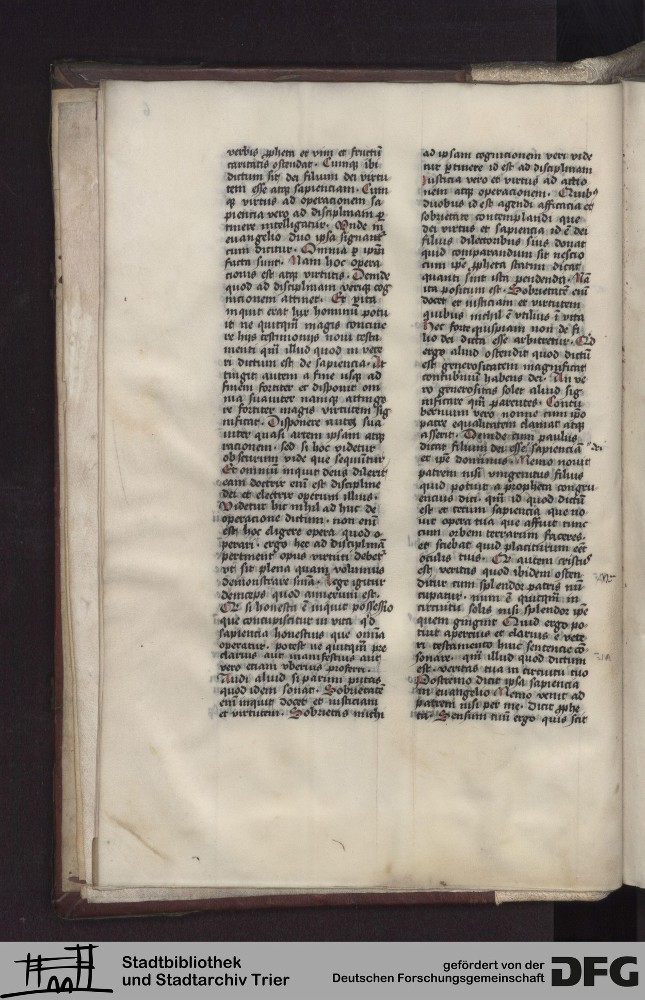 verbis ꝓpheta et vim et fructū
caritatis ostendat. Cumqꝫ ibi
dictum sit dei filium dei virtu
tem esse atqꝫ sapientiam. Cum
qꝫ virtus ad operationem sa
piencia vero ad disciplinam ꝑ
tinere intelligatur. Unde in
euangelio duo ipsa signant᷑
cum dicitur. Omnia ꝑ ip̄m
facta sunt. Nam hoc opera
tionis est atqꝫ virtutis. Deinde
quod ad disciplinam veriqꝫ cog
nicionem attinet. Et vita
inquit erat lux hominū potu
it ne quitqm̄ magis concine
re hijs testimonijs noui testa
menti qm̄ illud quod in vete
ri dictum est de sapiencia. At
tingit autem a fine usqꝫ ad
finem fortiter et disponit om
nia suauiter namqꝫ attinge
re fortiter magis virtutem sig
nificat. Disponere autē sua
uiter quasi artem ipsam atqꝫ
racionem. sed si hoc videtur
obscurum vide que sequūtur
Et omniū inquit deus dilexit
eam doctrix enī est discipline
dei et electrix operum illius.
Videtur hic nihil ad huc de
operacione dictum. non enī
est hoc eligere opera quod o
perari. ergo hec ad disciplinā
pertinent opus virtuti debet᷑
vt sit plena quam volumus
demonstrare sn̄ia. Lege igitur
deinceps quod annexum est.
Qꝫ si honesta ē inquit possessio
que concupiscitur in vita q̇d
sapiencia honestius que om̄ia
operatur. potest ne quitqm̄ pre
clarius aut manifestius aut
vero etiam vberius proferri.
Audi aliud si parum putas
quod idem sonat. Sobrietatē
enī inquit docet et iusticiam
et virtutem. Sobrietas michi
ad ipsam cognicionem veri vide
tur ꝑtinere id est ad disciplinam
Iusticia vero et virtus ad actio
nem atqꝫ operacionem. Quibꝰ
duobus id est agendi afficacia et
sobrietate contemplandi que
dei virtus et sapiencia id ē dei
filius dilectoribus suis donat
quid comparandum sit nescio
cum ip̄e ꝓpheta statim dicat
quanti sint ista pendenda. Nā
ita positum est. Sobrietatē enī
docet et iusticiam et virtutem
quibus nichil ē vtilius ī vita
Hec forte quispiam non de fi
lio dei dicta esse arbitretur. Qꝫ
ergo aliud ostendit quod dictū
est generositatem magnificat
contubniū habens dei. An ve
ro generositas solet aliud sig
nificare qm̄ parentes. Contu
bernium vero nonne cum ip̄o
patre equalitatem clamat atqꝫ
asserit. Deinde cum paulus
dicat filium dei esse sapienciā dei
et ip̄e dominus. Nemo nouit
patrem nisi vnigenitus filius
quid potuit a propheta congru
encius dici. qm̄ id quod dictū
est et tecum sapiencia que no
uit opera tua que affuit tunc
cum orbem terrarum faceres.
et sciebat quid placiturum eēt
oculis tuis. Qꝫ autem cristus
est veritas quod ibidem osten
ditur cum splendor patris nū
cupatur. num ē quitqm̄ in
circuitu solis nisi splendor ip̄e
quem gingnit Quid ergo po
tuit apercius et clarius ē vete
ri testamento huic sentencie cō
sonare. qm̄ illud quod dictum
est. veritas tua in circuitu tuo
Postremo dicit ipsa sapiencia
in euangelio Nemo venit ad
patrem nisi per me. dicit ꝓphe
ta. Sensum tuū ergo quis scit
Stadtbibliothek
und Stadtarchiv Trier
gefördert von der
Deutschen Forschungsgemeinschaft
DFG